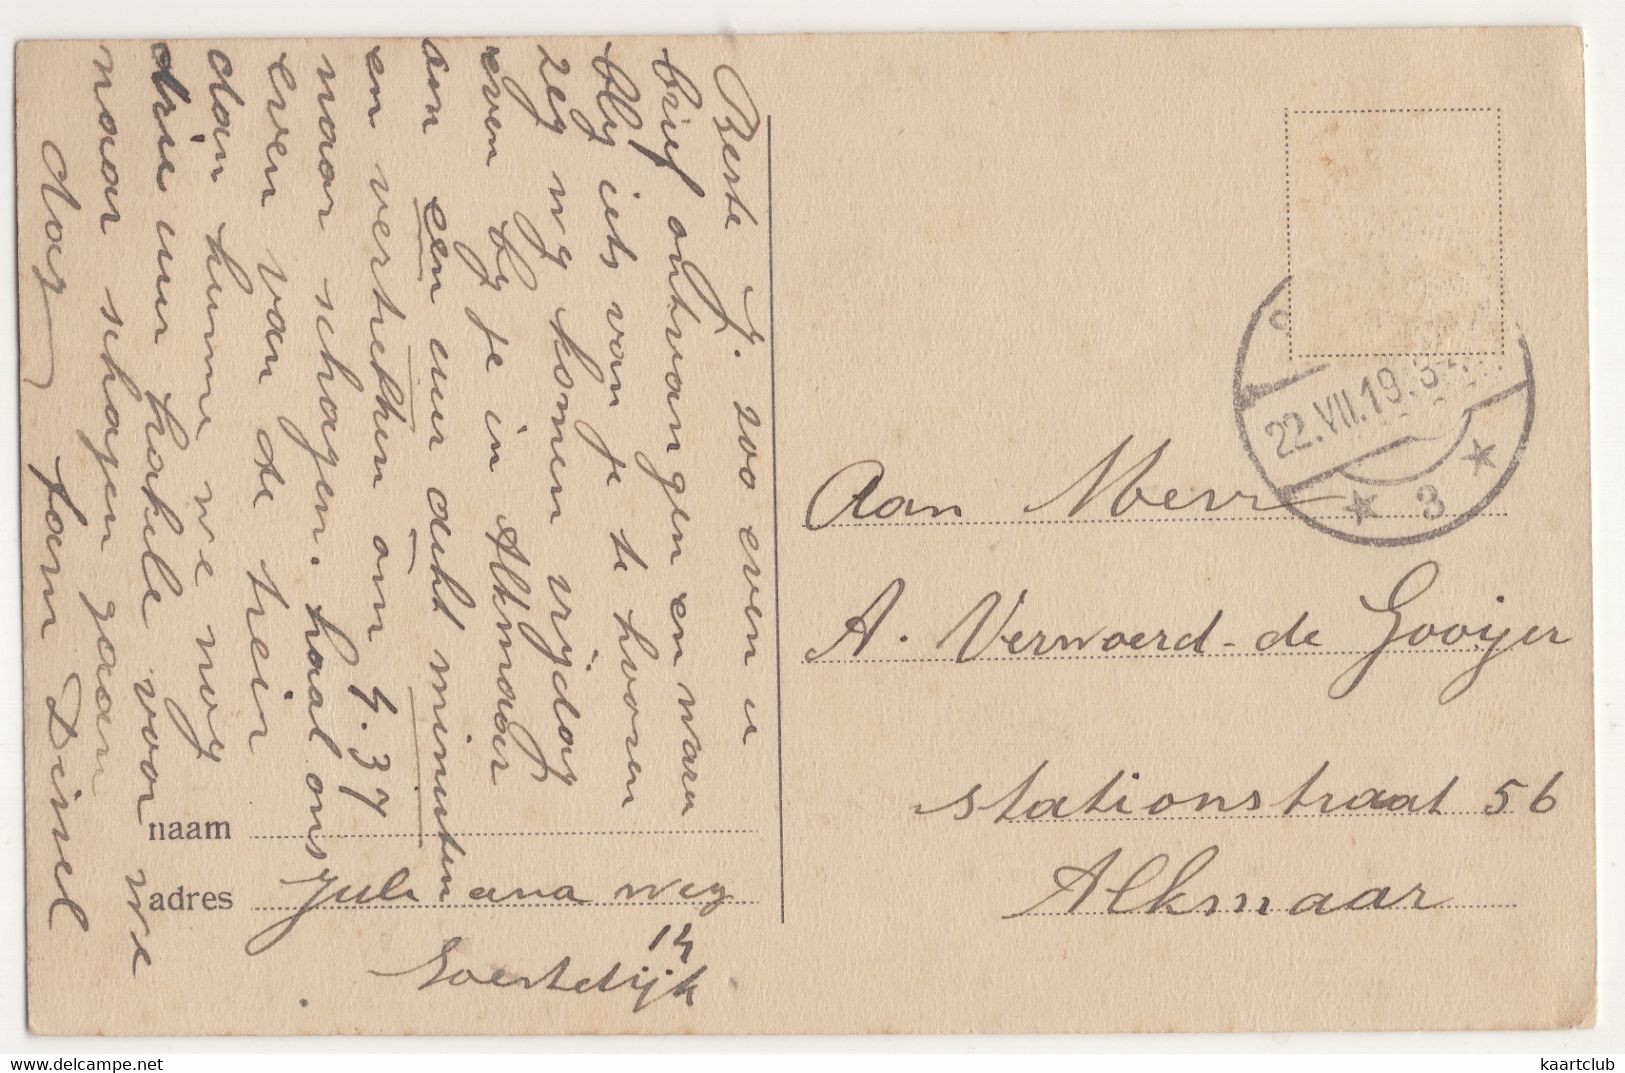 Beste J. zoo even u
brief ontvangen en waren
blij iets van je te hooren
zeg wij komen vrijdag
even bij je in Alkmaar
aan een uur acht minuten
en vertrekken om 4.37
naar schagen. haal ons
even van de trein
dan kunne we nog
drie uur hakele voor we
naar schagen gaan
dag
naam
adres Juliana weg
14
Soestdijk
22.VII.19.3
3
Aan Mevr
A. Verwoerd-de Gooijer
stationstraat 56
Alkmaar
kaartclub